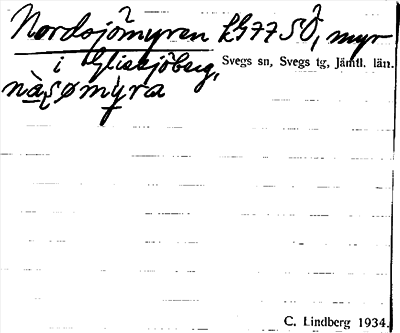 Nordsjömyren kG77SÖ, myr
i Glissjöberg, Svegs sn, Svegs tg, Jämtl. län.
nàsømyra
C. Lindberg 1934.